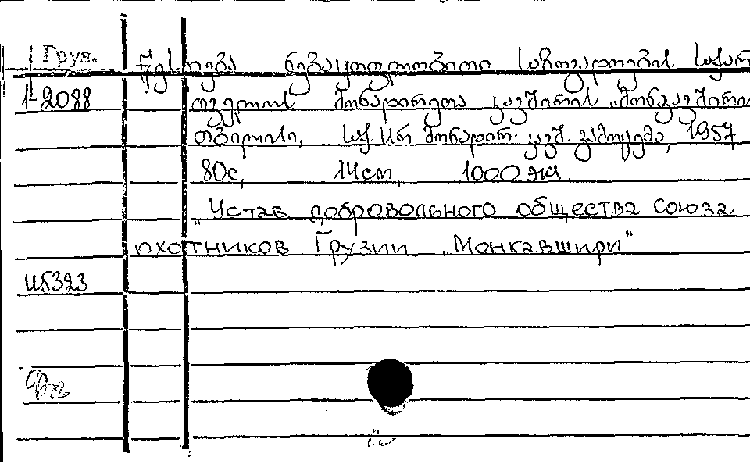 Груз.
წესდება ნებაყოფლობითი საზოგადოების საქარ
1-2088
თველოს მონადირეთა კავშირის „მონკავშირი
თბილისი, საქ.სსრ მონადირ. კავ. გამოცემა, 1957
80с, 14см, 1000экз
„Устав добровольного общества союза
охотников Грузии „Монкавшири"